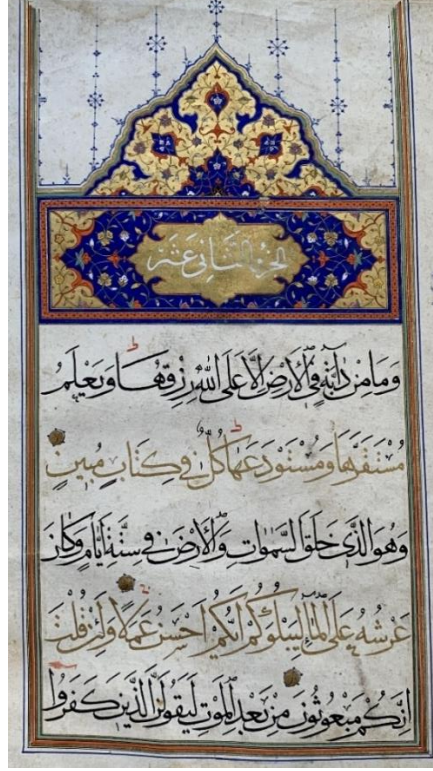 الجزء الثاني عشر
وَمَا مِن دَابَّةٍ فِي الْأَرْضِ إِلَّا عَلَى اللَّهِ رِزْقُهَا وَيَعْلَمُ
مُسْتَقَرَّهَا وَمُسْتَوْدَعَهَا كُلٌّ فِي كِتَابٍ مُبِينٍ
وَهُوَ الَّذِي خَلَقَ السَّمٰوَاتِ وَالْأَرْضَ فِي سِتَّةِ أَيَّامٍ وَكَانَ
عَرْشُهُ عَلَى الْمَاءِ لِيَبْلُوَكُمْ أَيُّكُمْ أَحْسَنُ عَمَلًا وَلَئِنْ قُلْتَ
إِنَّكُمْ مَبْعُوثُونَ مِنْ بَعْدِ الْمَوْتِ لَيَقُولَنَّ الَّذِينَ كَفَرُوا